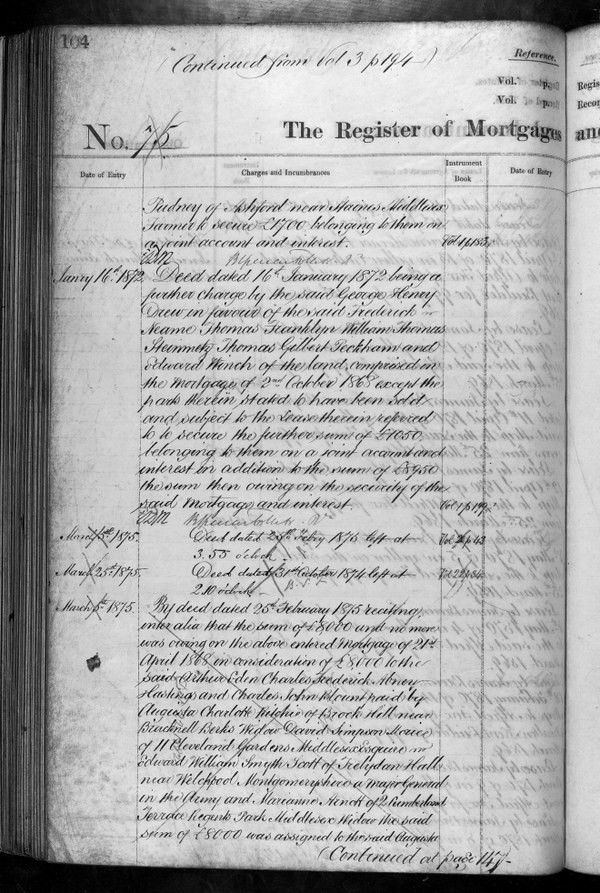 104
(Continued from Vol 3 p 194)
Reference.
Vol. p.
Vol. p.
No. 75
The Register of Mortgages and
Date of Entry
Charges and Incumbrances
Instrument Book
Date of Entry
of Ashford near Staines Middlesex
to secure £1700 belonging to them on
a joint account and interest.
Vol 1 p 183
Janry 16th 1872
Deed dated 16th January 1872 being a
further charge by the said George Henry
Drew in favour of the said Frederick
Neame Thomas Franklyn William Thomas
Steinmetz Thomas Gilbert Peckham and
Edward Winch of the land comprised in
the mortgage of 2nd October 1868 except the
parts therein stated to have been sold
and subject to the Lease therein referred
to to secure the further sum of £1050
belonging to them on a joint account and
interest in addition to the sum of £3950
the sum then owing on the security of the
said Mortgage and interest.
Vol 1 p 199
March 5th 1875.
Deed dated 25th Febry 1875 left at
3.55 o'clock
Vol 2 p 43
March 25th 1875.
Deed dated 31st October 1874 left at
2.10 o'clock
Vol 2 p 54
March 5th 1875.
By deed dated 25th February 1875 reciting
inter alia that the sum of £8000 and no more
was owing on the above entered Mortgage of 21st
April 1868 in consideration of £8000 to the
said Arthur Eden Charles Frederick Abney
Hastings and Charles John Blount paid by
Augusta Charlotte Ritchie of Brook Hill near
Bracknell Berks Widow David Simpson Morice
of 11 Cleveland Gardens Middlesex Esquire
Edward William Smyth Scott of Trelydan Hall
near Welchpool Montgomeryshire a Major General
in the Army and Marianne of 2 Cumberland
Terrace Regents Park Middlesex Widow the said
sum of £8000 was assigned to the said Augusta
(Continued at page 147)